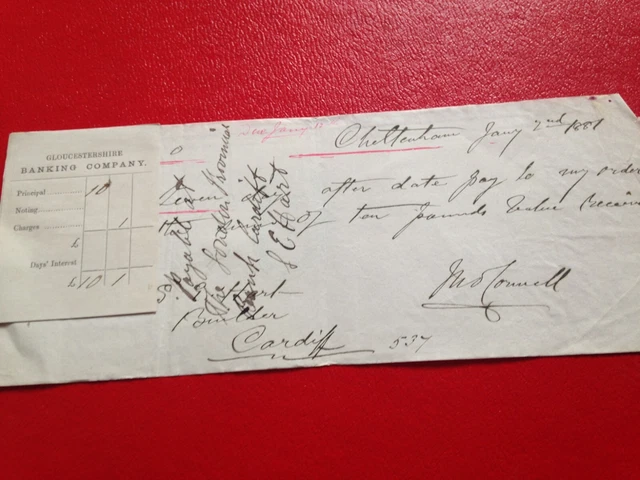 GLOUCESTERSHIRE
BANKING COMPANY.
Principal 10
Noting
Charges 1
£
Days' Interest
£ 10 1
Due Jany
Cheltenham Jany 2nd 1881
after date pay to my order
of ten pounds value
Payable at
The London Provincial
Bank Cardiff
S E Hart
Hart
Builder
Cardiff 537